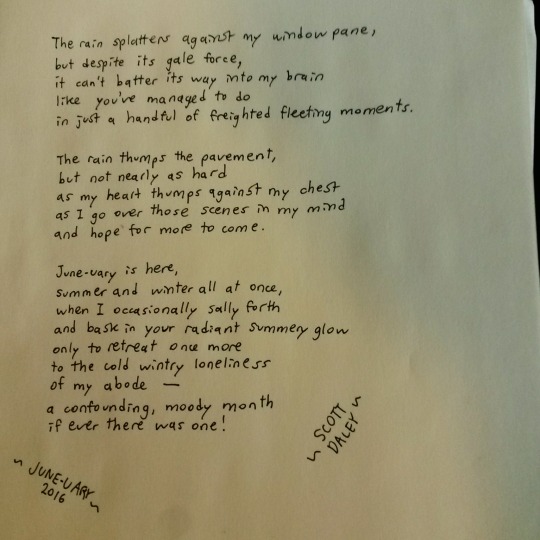 The rain splatters against my window pane,
but despite its gale force,
it can't batter its way into my brain
like you've managed to do
in just a handful of freighted fleeting moments.

The rain thumps the pavement,
but not nearly as hard
as my heart thumps against my chest
as I go over those scenes in my mind
and hope for more to come.

June-uary is here,
summer and winter all at once,
when I occasionally sally forth
and bask in your radiant summery glow
only to retreat once more
to the cold wintry loneliness
of my abode —
a confounding, moody month
if ever there was one!

~ SCOTT
DALEY ~

~ JUNE-UARY
2016 ~